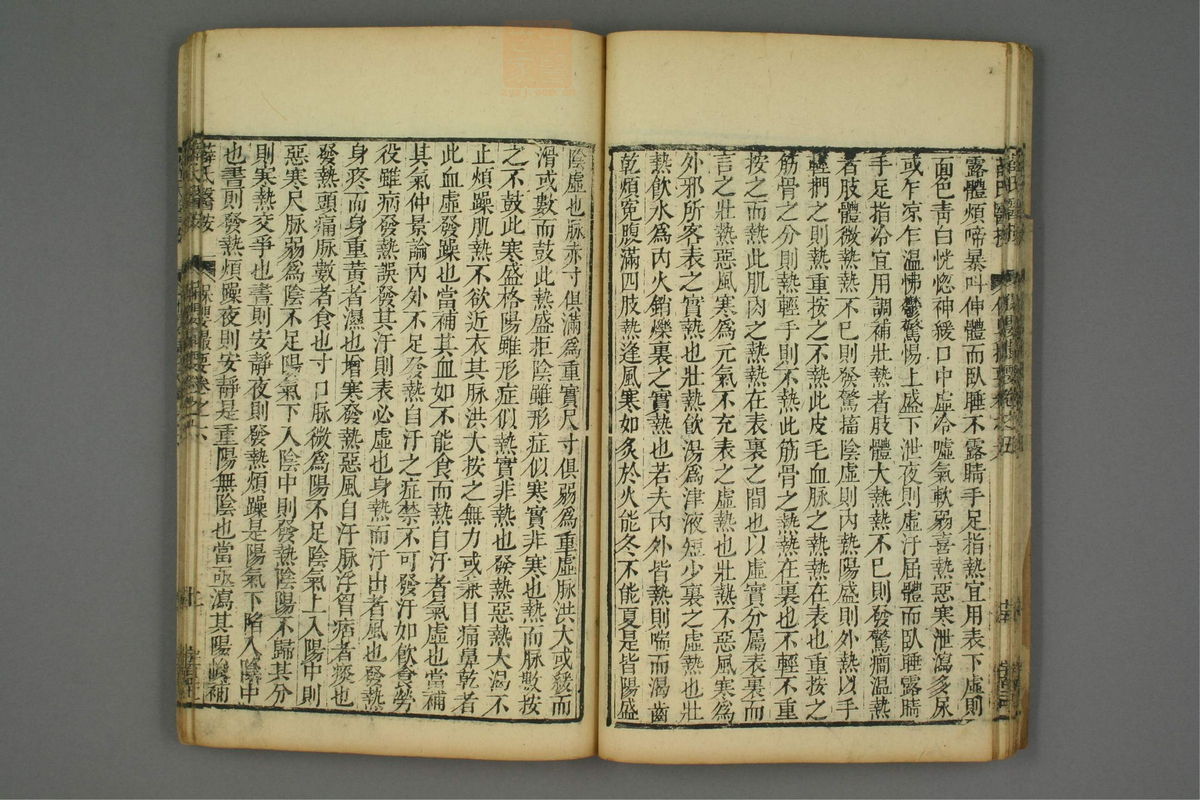 露體煩啼暴叫伸體而臥睡不露睛手足指熱宜用表下虛則
面色靑白恍惚神緩口中虛冷噓氣軟弱喜熱惡寒泄瀉多尿
或乍凉乍温怫鬱驚惕上盛下泄夜則虛汗屈體而臥睡露睛
手足指冷宜用調補壯熱者肢體大熱熱不已則發驚癎温熱
者肢體微熱熱不已則發驚搐陰虛則內熱陽盛則外熱以手
輕捫之則熱重按之不熱此皮毛血脉之熱熱在表也重按之
筋骨之分則熱輕手則不熱此筋骨之熱熱在裏也不輕不重
按之而熱此肌肉之熱熱在表裏之間也以虛實分屬表裏而
言之壯熱惡風寒爲元氣不充表之虛熱也壯熱不惡風寒爲
外邪所客表之實熱也壯熱飲湯爲津液短少裏之虛熱也壯
熱飲水爲內火銷爍裏之實熱也若夫內外皆熱則喘而渴齒
乾煩寃腹滿四肢熱逢風寒如炙於火能冬不能夏是皆陽盛
陰虛也脉亦寸俱滿爲重實尺寸俱弱爲重虛脉洪大或緩而
滑或數而鼓此熱盛拒陰雖形症似寒實非寒也熱而脉數按
之不鼓此寒盛格陽雖形症似熱實非熱也發熱惡熱大渴不
止煩躁肌熱不欲近衣其脉洪大按之無力或兼目痛鼻乾者
此血虛發躁也當補其血如不能食而熱自汗者氣虛也當補
其氣仲景論內外不足發熱自汗之症禁不可發汗如飲食勞
役雖病發熱誤發其汗則表必虛也身熱而汗出者風也發熱
身疼而身重黃者濕也憎寒發熱惡風自汗脉浮胷痞者痰也
發熱頭痛脉數者食也寸口脉微爲陽不足陰氣上入陽中則
惡寒尺脉弱爲陰不足陽氣下入陰中則發熱陰陽不歸其分
則寒熱交爭也晝則安靜夜則發熱煩躁是陽氣下陷入陰中
也晝則發熱煩躁夜則安靜是重陽無陰也當亟瀉其陽峻補
薛氏醫按 保嬰撮要卷之六